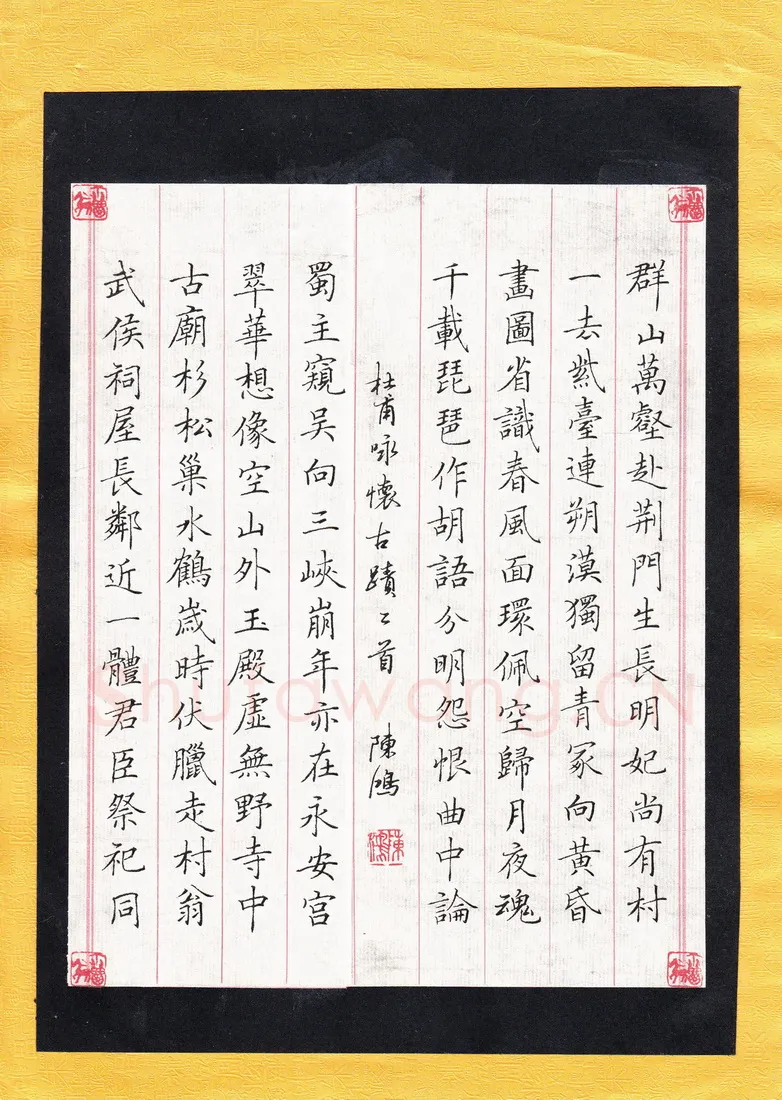 群山萬壑赴荆門生長明妃尚有村
一去紫臺連朔漠獨留青冢向黃昏
畫圖省識春風面環佩空歸月夜魂
千載琵琶作胡語分明怨恨曲中論
杜甫咏懷古蹟二首 陳鴻
蜀主窺吳向三峽崩年亦在永安宮
翠華想像空山外玉殿虛無野寺中
古廟杉松巢水鶴歲時伏臘走村翁
武侯祠屋長鄰近一體君臣祭祀同
Shufawang.CN